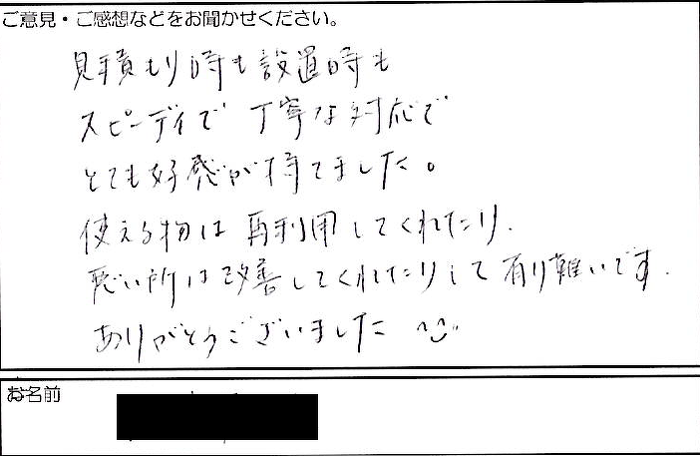 ご意見・ご感想などをお聞かせください。
見積もり時も設置時も
スピーディで丁寧な対応で
とても好感が持てました。
使える物は再利用してくれたり、
悪い所は改善してくれたりして有り難いです。
ありがとうございました
お名前